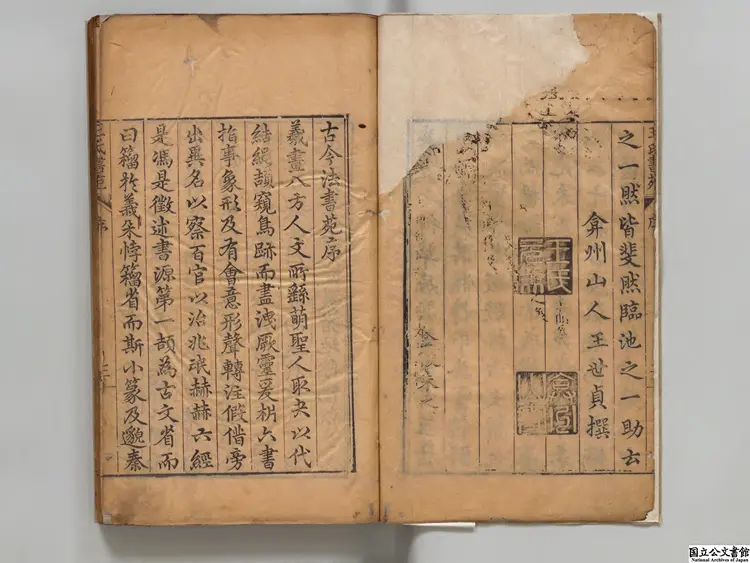 王氏書苑
序
之一然皆斐然臨池之一助云
弇州山人王世貞撰
王氏
古今法書苑序
羲畫八方人文所繇萌聖人取夬以代
結繩頡窺鳥跡而盡洩厥靈爰析六書
指事象形及有會意形聲轉注假借旁
出異名以察百官以治兆珉赫赫六經
是馮是徵述書源第一頡為古文省而
曰籀於羲朱悖籀省而斯小篆及邈秦
王氏書苑
序
国立公文書館
National Archives of Japan